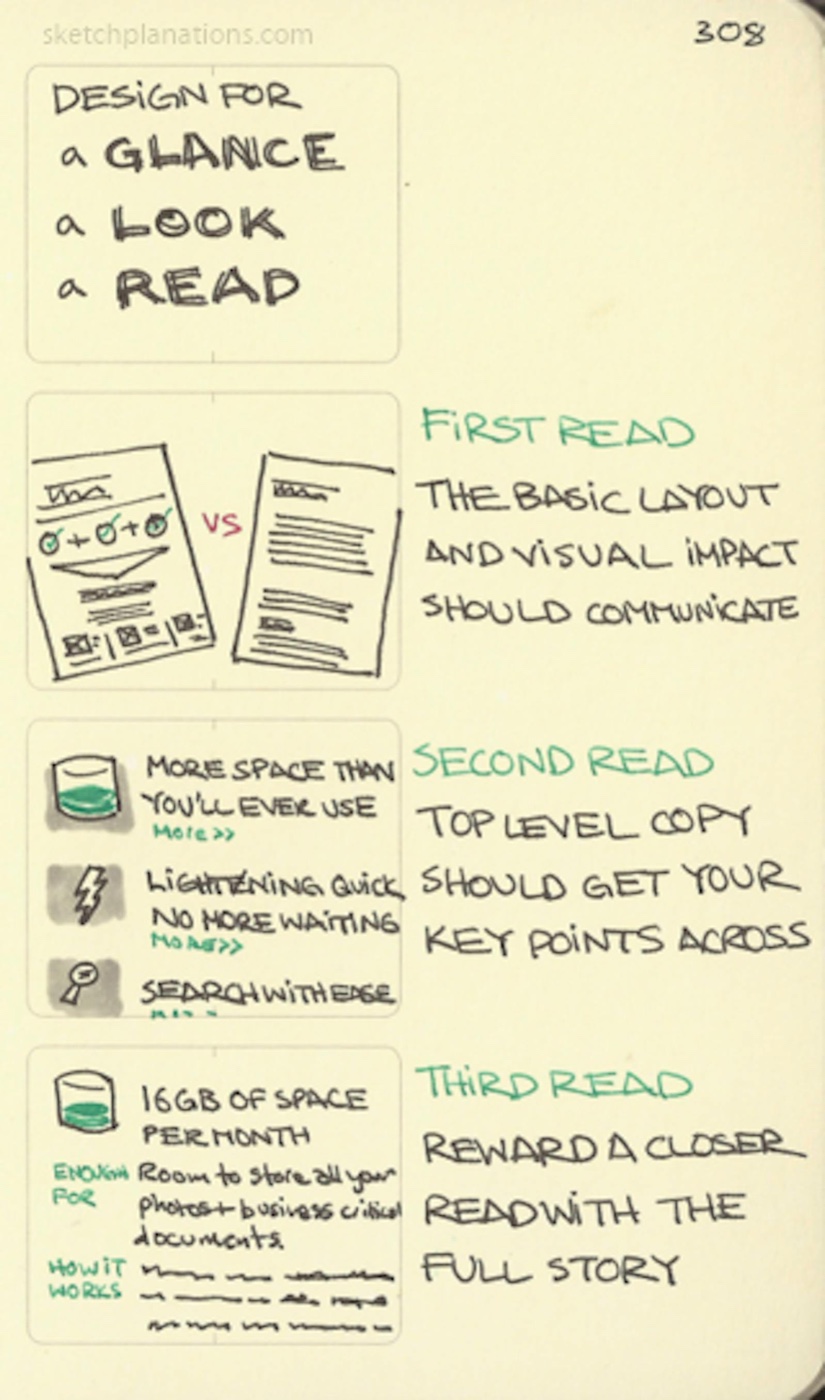 sketchplanations.com
308
DESIGN FOR
a GLANCE
a LOOK
a READ
VS
FIRST READ
THE BASIC LAYOUT
AND VISUAL IMPACT
SHOULD COMMUNICATE
MORE SPACE THAN
YOU'LL EVER USE
More >>
LIGHTENING QUICK
NO MORE WAITING
MORE>>
SEARCH WITH EASE
SECOND READ
TOP LEVEL COPY
SHOULD GET YOUR
KEY POINTS ACROSS
16GB OF SPACE
PER MONTH
ENOUGH FOR
Room to store all your
photos + business critical
documents.
HOW IT
WORKS
THIRD READ
REWARD A CLOSER
READ WITH THE
FULL STORY